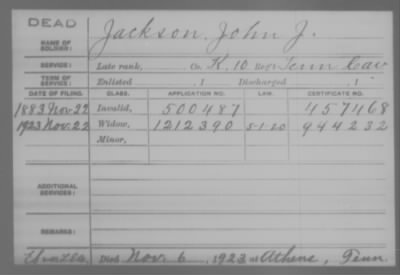 DEAD
NAME OF SOLDIER: Jackson, John J.
SERVICE: Late rank, Co. K, 10 Reg't Tenn Cav
TERM OF SERVICE: Enlisted , 1 Discharged , 1
DATE OF FILING. CLASS. APPLICATION NO. LAW. CERTIFICATE NO.
1883 Nov. 22 Invalid, 500487 457468
1923 Nov. 22 Widow, 1212390 5-1-20 944232
Minor,
ADDITIONAL SERVICES:
REMARKS:
Died Nov. 6, 1923 at Athens, Tenn.